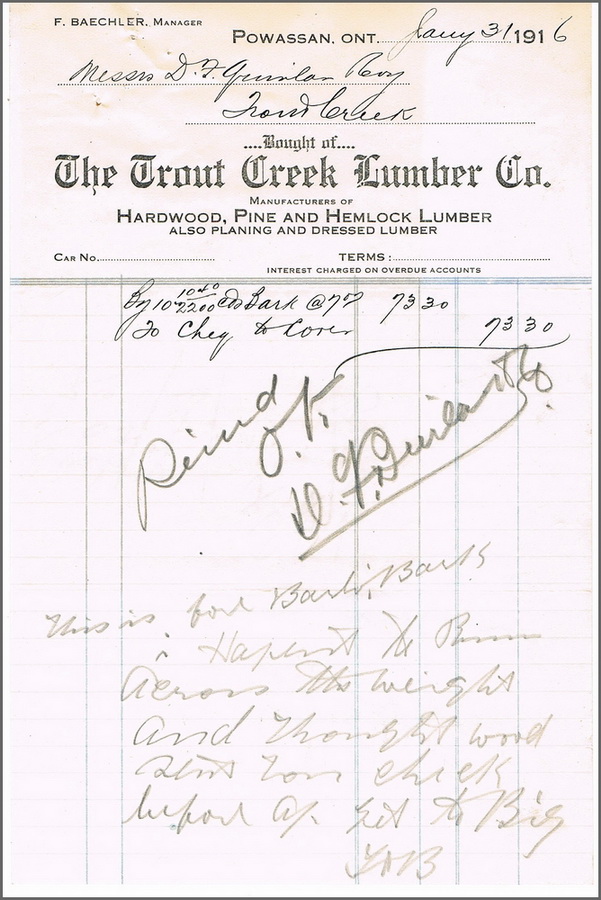 F. BAECHLER, MANAGER
POWASSAN, ONT. Jany 31 1916
Messrs D. F. Quinlan Roy
Trout Creek
....Bought of....
The Trout Creek Lumber Co.
MANUFACTURERS OF
HARDWOOD, PINE AND HEMLOCK LUMBER
ALSO PLANING AND DRESSED LUMBER
CAR No. TERMS:
INTEREST CHARGED ON OVERDUE ACCOUNTS
By 10 1040/2200 cds Bark @ 7 00 73 30
To Cheq to Cover 73 30
O.K.
D. F. Quinlan
This is for Bark
i Hapent to
Across the weight
And thought wood
chek
to Big